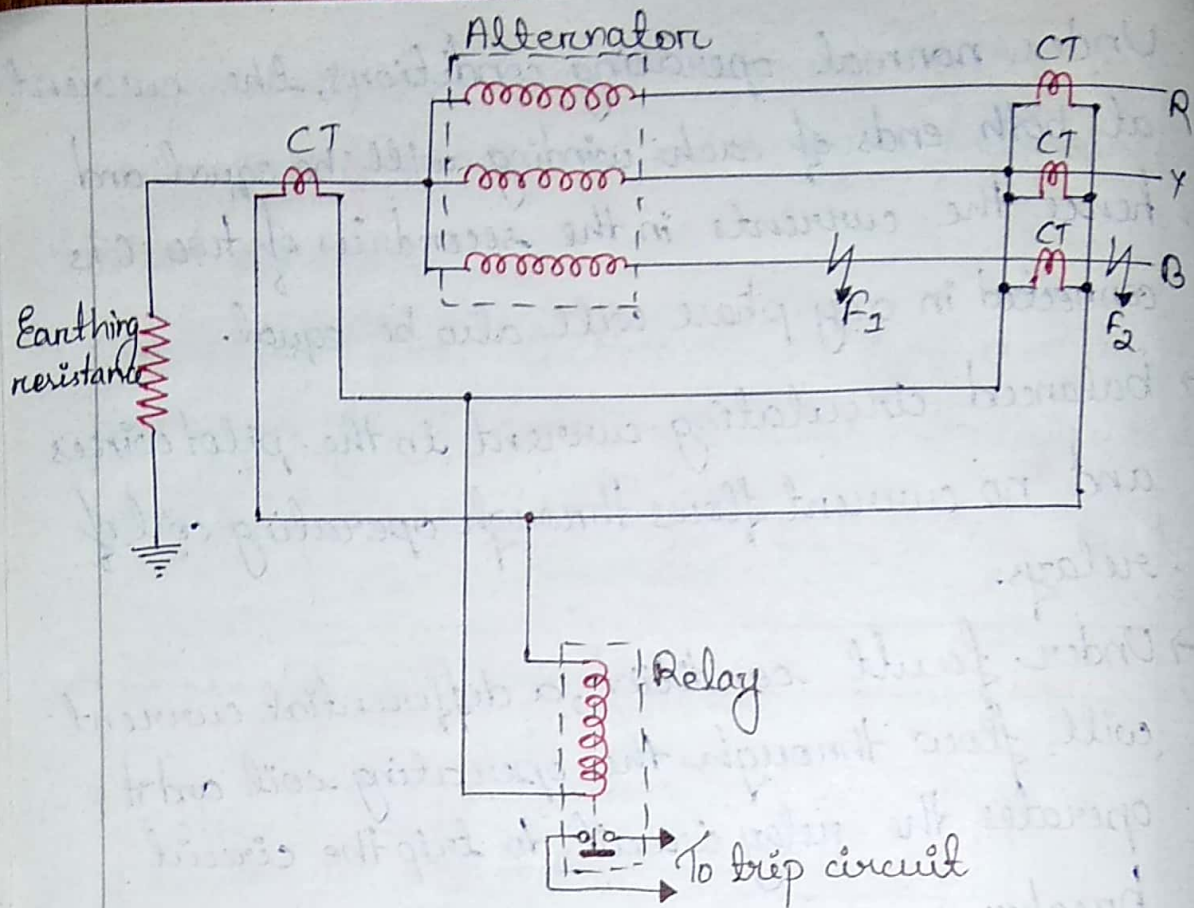 Alternator
CT
R
CT
CT
Y
CT
B
F1
F2
Earthing
resistance
Relay
To trip circuit